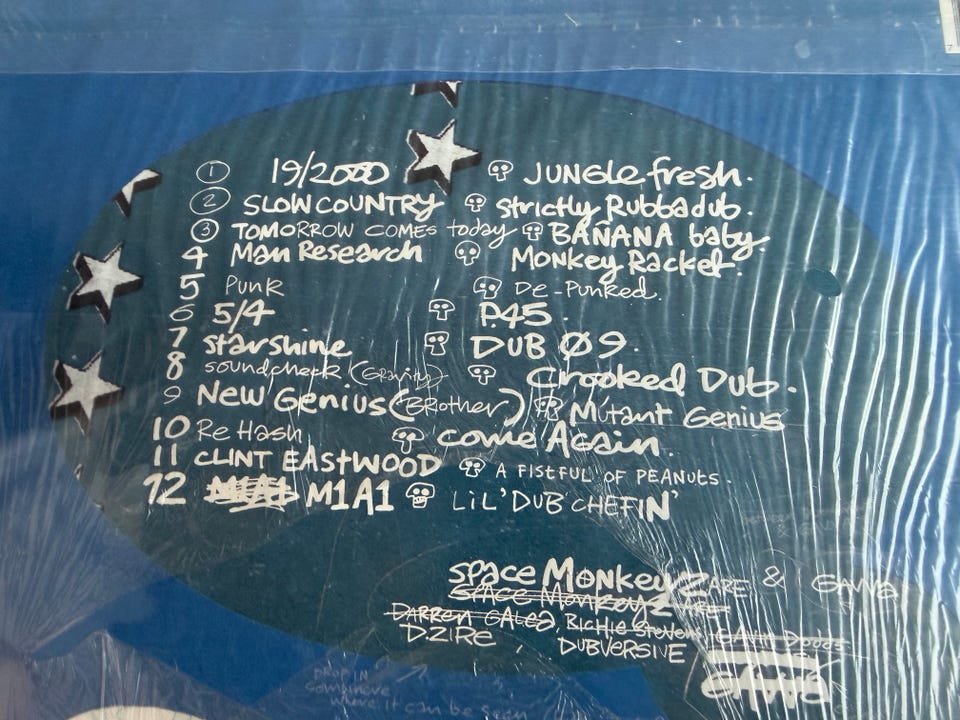 1 19/2000 JUNGLE fresh.
2 SLOW COUNTRY strictly Rubbadub.
3 TOMORROW COMES today BANANA baby.
4 Man Research MONKEY Racket.
5 Punk De-Punked.
6 5/4 P.45.
7 starshine DUB Ø9.
8 soundcheck (Gravity) Crooked Dub.
9 New Genius (BRother) Mutant Genius
10 Re Hash come Again.
11 CLINT EASTWOOD A FISTFUL OF PEANUTS.
12 M1A1 M1A1 LiL' DUB CHEFIN'
space MonkeyZ ARE & GAVVA
space Monkeyz ARE
DARREN GALEA, RICHIE STEVENS, GAVIN DODDS
D-ZIRE, DUBVERSIVE
DROP IN
somewhere
where it can be seen